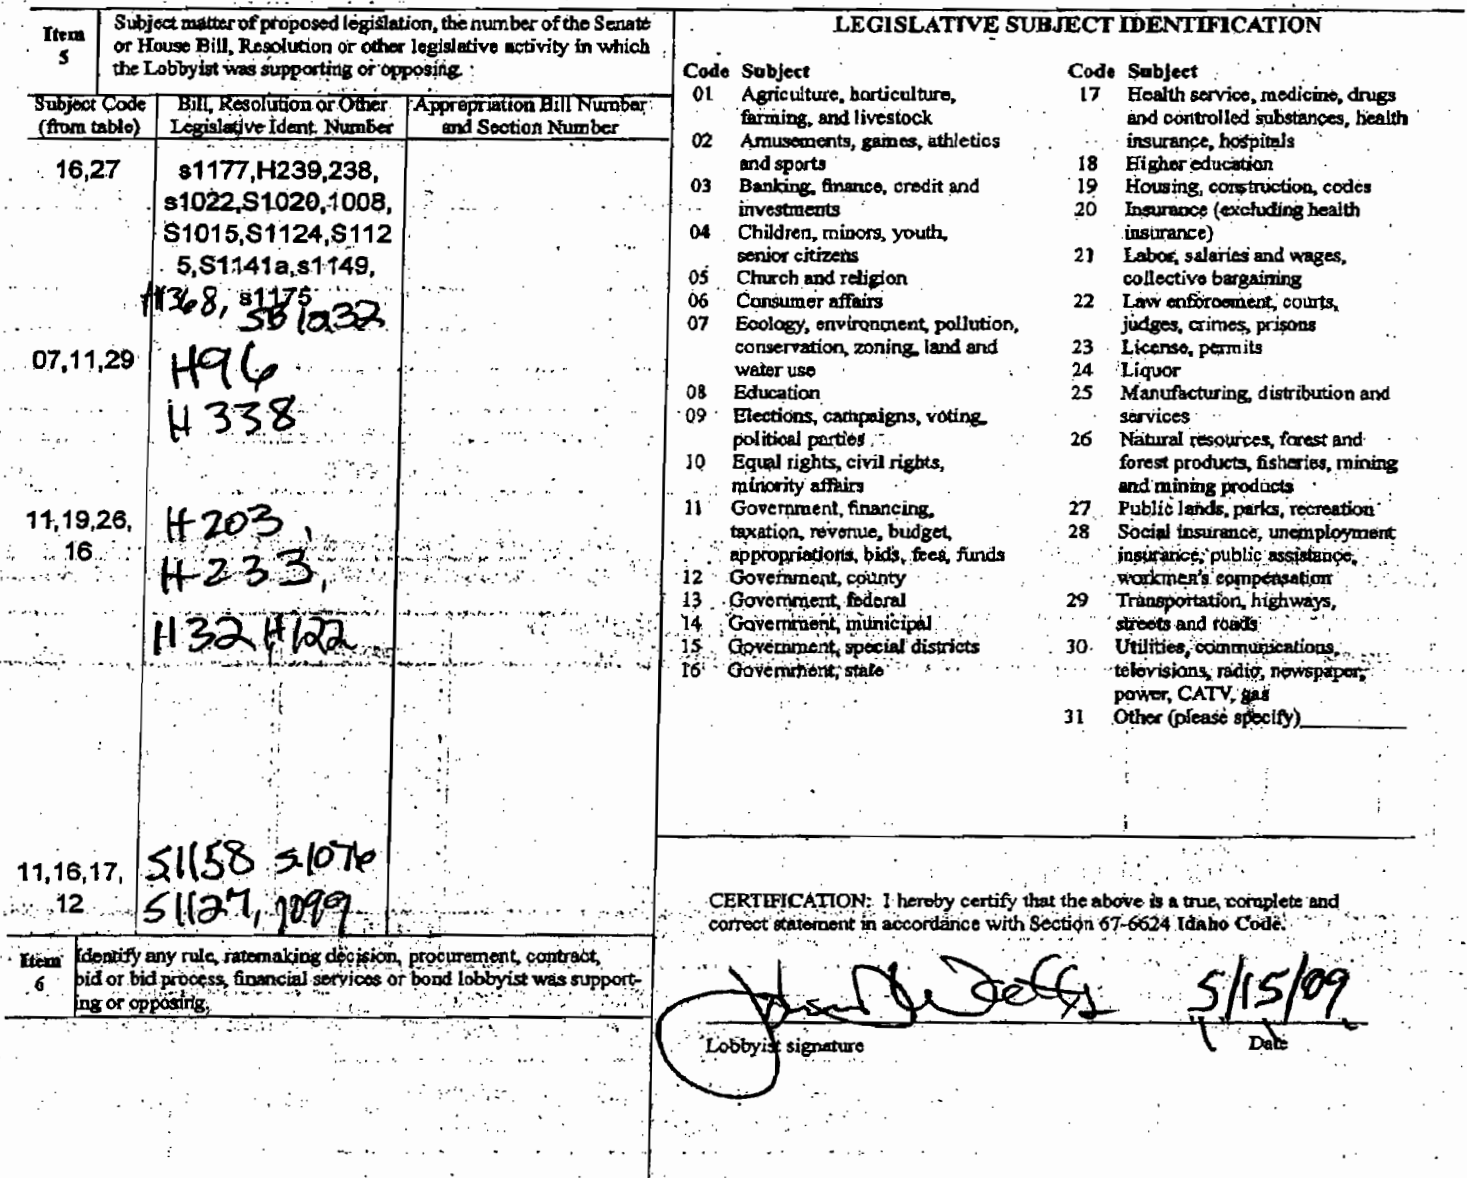 Item 5
Subject matter of proposed legislation, the number of the Senate
or House Bill, Resolution or other legislative activity in which
the Lobbyist was supporting or opposing.
Subject Code
(from table)
Bill, Resolution or Other
Legislative Ident. Number
Appropriation Bill Number
and Section Number
16,27
s1177,H239,238,
s1022,S1020,1008,
S1015,S1124,S112
5,S1141a,s1149,
H368, s1175
SB 1232
07,11,29
H96
H 338
11,19,26,
16
H 203,
H 233,
H 32, H122
11,16,17,
12
S1158 S1076
S1127, 1099
Item 6
Identify any rule, ratemaking decision, procurement, contract,
bid or bid process, financial services or bond lobbyist was support-
ing or opposing.
LEGISLATIVE SUBJECT IDENTIFICATION
Code Subject
01 Agriculture, horticulture,
farming, and livestock
02 Amusements, games, athletics
and sports
03 Banking, finance, credit and
investments
04 Children, minors, youth,
senior citizens
05 Church and religion
06 Consumer affairs
07 Ecology, environment, pollution,
conservation, zoning, land and
water use
08 Education
09 Elections, campaigns, voting,
political parties
10 Equal rights, civil rights,
minority affairs
11 Government, financing,
taxation, revenue, budget,
appropriations, bids, fees, funds
12 Government, county
13 Government, federal
14 Government, municipal
15 Government, special districts
16 Government, state
Code Subject
17 Health service, medicine, drugs
and controlled substances, health
insurance, hospitals
18 Higher education
19 Housing, construction, codes
20 Insurance (excluding health
insurance)
21 Labor, salaries and wages,
collective bargaining
22 Law enforcement, courts,
judges, crimes, prisons
23 License, permits
24 Liquor
25 Manufacturing, distribution and
services
26 Natural resources, forest and
forest products, fisheries, mining
and mining products
27 Public lands, parks, recreation
28 Social insurance, unemployment
insurance, public assistance,
workmen's compensation
29 Transportation, highways,
streets and roads
30 Utilities, communications,
televisions, radio, newspaper,
power, CATV, gas
31 Other (please specify)
CERTIFICATION: I hereby certify that the above is a true, complete and
correct statement in accordance with Section 67-6624 Idaho Code.
5/15/09
Lobbyist signature
Date